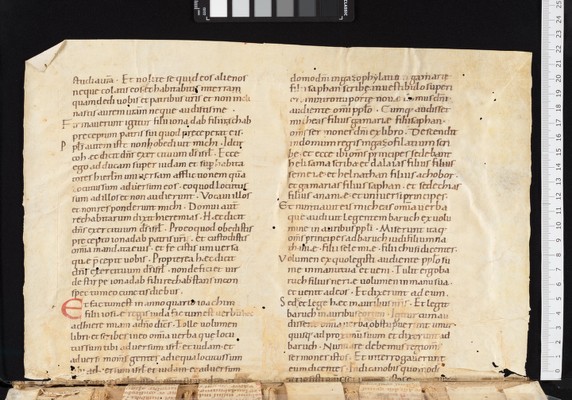 studia vr̃a · Et nolite sequi deos alienos
neque colatis eos et habitabitis in terram
quam dedi vobis et patribus vr̃is et non incli
nastis aurem vr̃am neque audistis me ·
Firmaverunt igitur filii ionadab filii rechab
preceptum patris sui quod preceperat eis ·
Pp̃ls autem iste non hobedivit michi · Idcir
co hęc dicit dñs exercituum dñs isrl̃ · Ecce
ego adducam super iudam et super habita
tores hierlm̃ universam afflictionem quã
locutus sum adversum eos · eo quod locutus
sum ad illos et non audierunt · Vocavi illos
et non responderunt michi · Domui aut̃
rechabitarum dixit hieremias · Hęc dicit
dñs exercituum dñs isrl̃ · Pro eo quod obedistis
precepto ionadab patris vr̃i · et custodistis
om̃ia mandata eius · et fecistis universa
quę pręcepit vobis · Propterea hęc dicit
dñs exercituum dñs isrl̃ · non deficiet vir
de stirpe ionadab filii rechab stans in con
spectu meo cunctis diebus ·
Et factum est in anno quarto ioachim
filii iosie regis iuda factum est verbum hoc
ad hieremiam a dño dicens · Tolle volumen
libri et scribes in eo om̃ia verba quę locu
tus sum tibi adversum isrl̃ et iudam et
adversum om̃s gentes a die qua locutus sum
ad te
domo dñi in gazophylatio gamarię
filii saphan scribę in vestibulo superi
ori in introitu portę novę domus dñi
audiente om̃i pp̃lo · Cumque audisset
micheas filius gamarię filii saphan
om̃s sermones dñi ex libro · Descendit
in domum regis in gazofilatium scri
bę · et ecce ibi om̃s principes sedebant
helisama scriba et dalaias filius
semeię et helnathan filius achobor ·
et gamarias filius saphan · et sedechias
filius ananię et universi principes ·
Et nuntiavit eis micheas om̃ia verba
quę audivit legente baruch ex volu
mine in auribus pp̃li · Miserunt itaq̃
om̃s principes ad baruch iudi filium na
thanię filii selemię filii chusi dicentes ·
Volumen ex quo legisti audiente pp̃lo su
me in manu tua et veni · Tulit ergo ba
ruch filius nerię volumen in manu sua
et venit ad eos · Et dixerunt ad eum ·
Sede et lege hęc in auribus nr̃is · Et legit
baruch in auribus eorum · Igitur cum au
dissent om̃ia verba obstupuerunt unus
quisque ad proximum suum et dixerunt ad
baruch · Nuntiare debemus regi om̃s
sermones istos · Et interrogaverunt
eum dicentes · Indica nobis quomodo